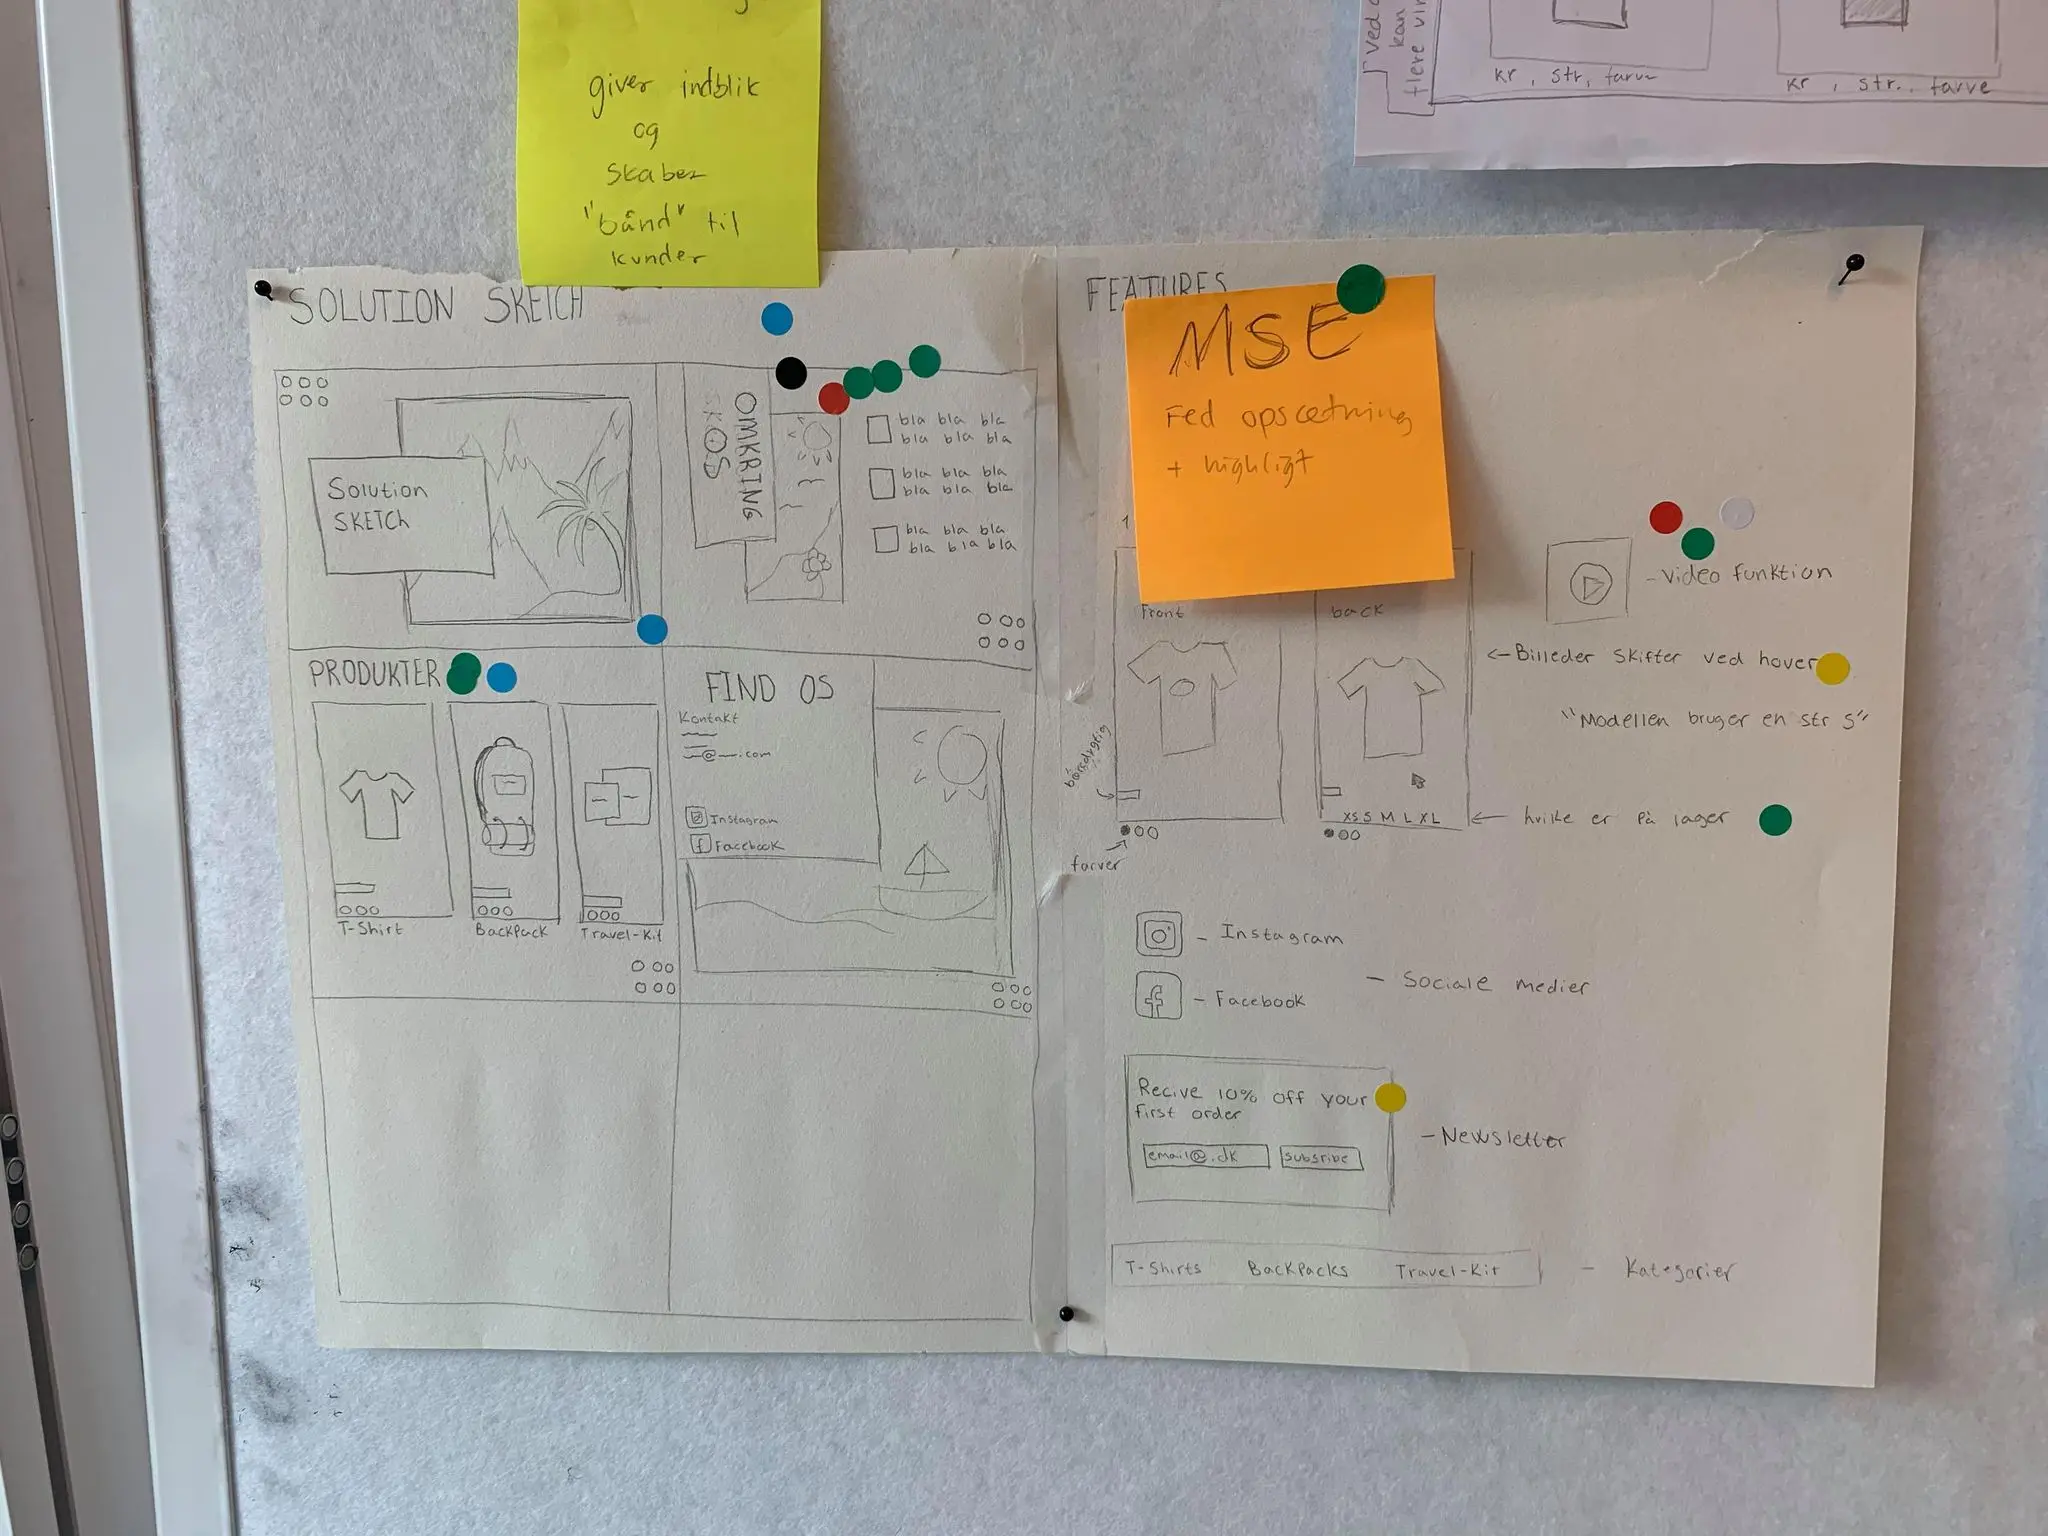 giver indblik
og
skaber
"bånd" til
kunder
kan
kr, str, farve
kr, str.. farve
SOLUTION SKETCH
Solution
SKETCh
OMKRING
SKOS
bla bla bla
bla bla bla
bla bla bla
bla bla bla
bla bla bla
bla bla bla
PRODUKTER
T-Shirt
BackPack
Travel-Kit
FIND OS
Kontakt
@ .com
Instagram
Facebook
FEATURES
MSE
Fed opsætning
+ highligt
1
Front
back
- Video funktion
Billeder skifter ved hover
"Modellen bruger en str S"
XS S M L XL
hvilke er På lager
farver
- Instagram
- Facebook
- Sociale medier
Recive 10% off your
first order
email@.dk
subsribe
- Newsletter
T-Shirts BackPacks Travel-Kit
- Kategorier